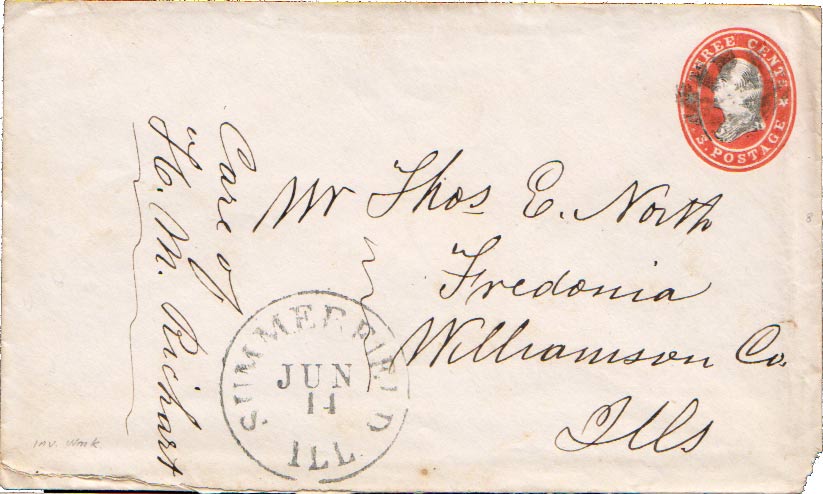 THREE CENTS
U.S. POSTAGE
Mr Thos E. North
Fredonia
Williamson Co.
Ills
Care of
H. M. Richart
SUMMERFIELD
JUN
11
ILL.
inv. Wmk.
8